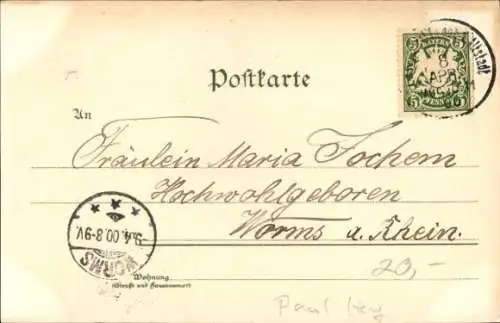 Postkarte
An
Fräulein Maria Jochem
Hochwohlgeboren
Worms a. Rhein.
BAYERN
5 5
PFENNIG
8
APR
9.4.00.8-9V.
WORMS
Wohnung
(Straße und Hausnummer)
20,-
Paul